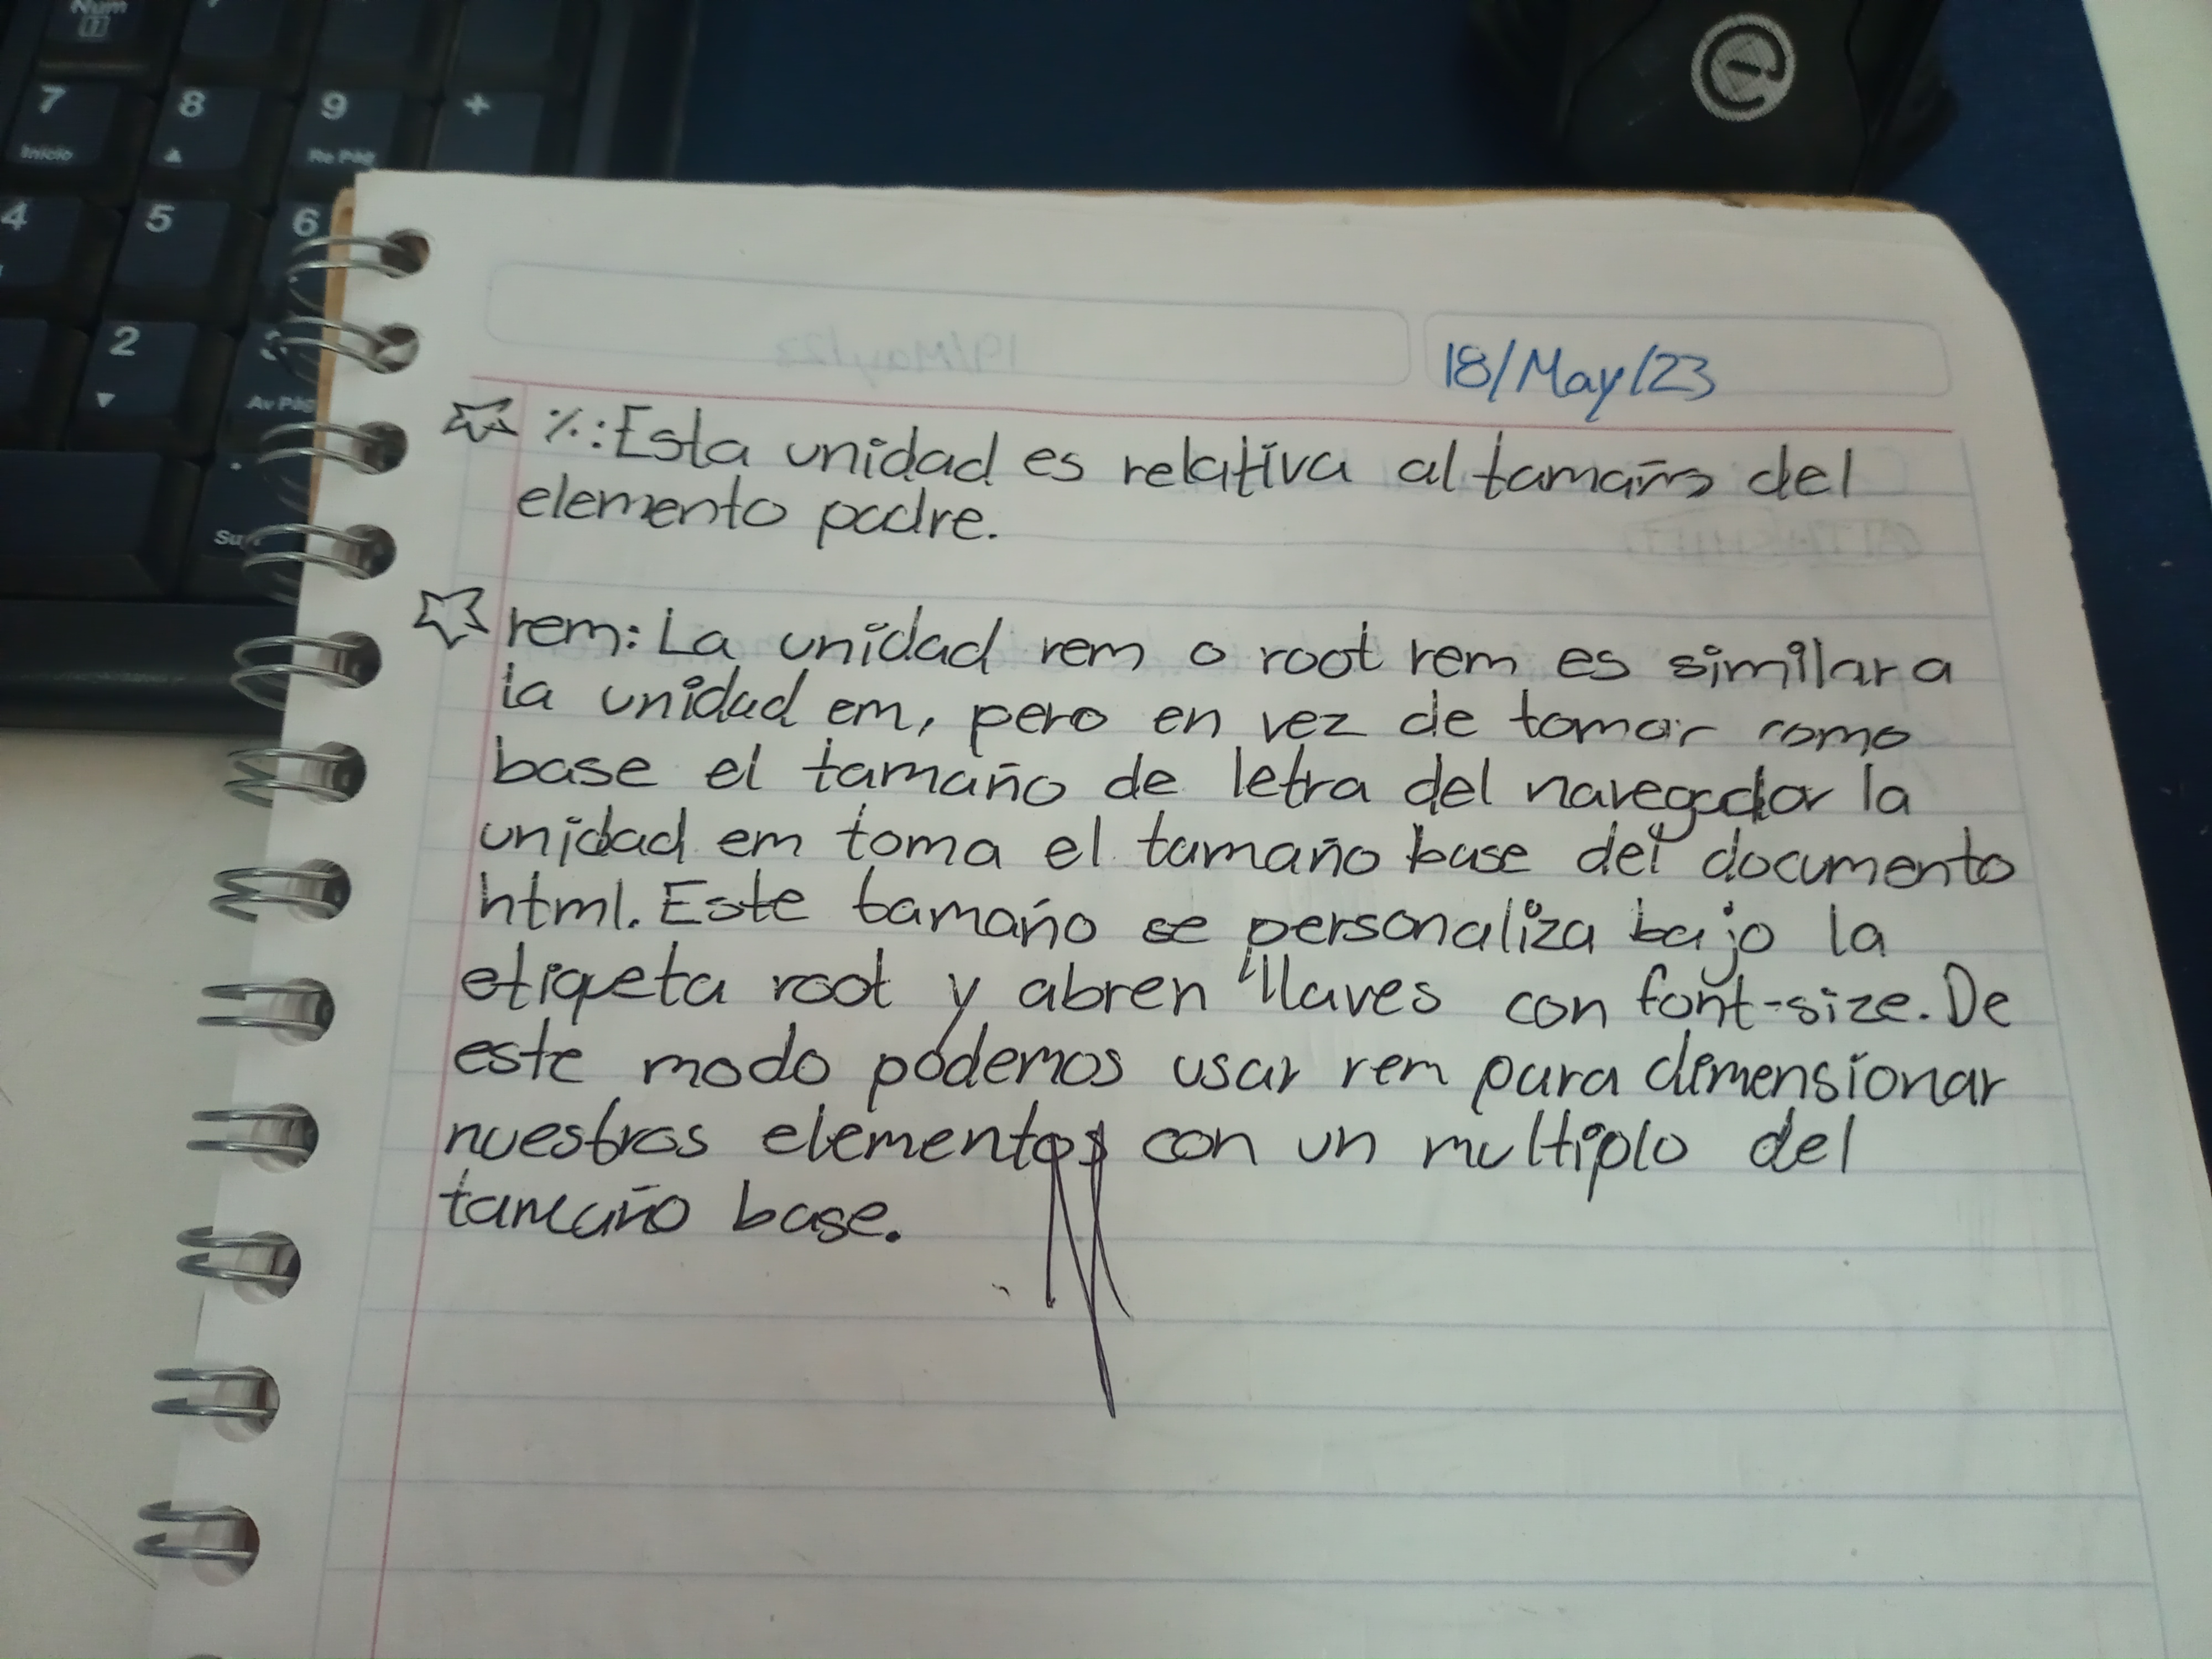 Num
7
8
9
+
Inicio
▲
Re Pág
4
5
6
2
▼
Av Pág
18/May/23
%: Esta unidad es relativa al tamaño del
elemento padre.
rem: La unidad rem o root rem es similar a
la unidad em, pero en vez de tomar como
base el tamaño de letra del navegador la
unidad em toma el tamaño base del documento
html. Este tamaño se personaliza bajo la
etiqueta root y abren llaves con font-size. De
este modo podemos usar rem para dimensionar
nuestros elementos con un multiplo del
tamaño base.